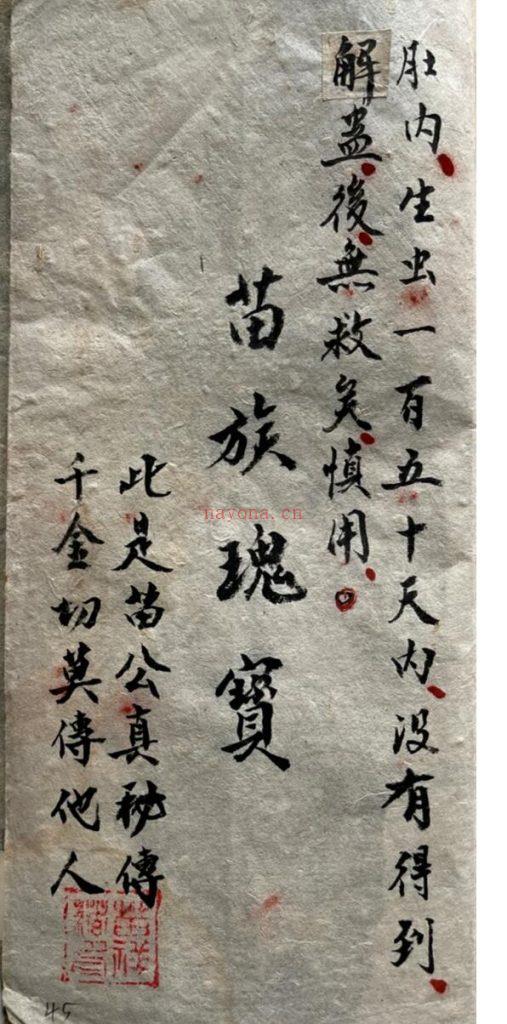 肚内、生虫一百五十天内、没有得到、
解蛊、後、無救矣、慎用。
苗族瑰寶
此是苗公真秘傳
千金切莫傳他人
nayona.cn
45